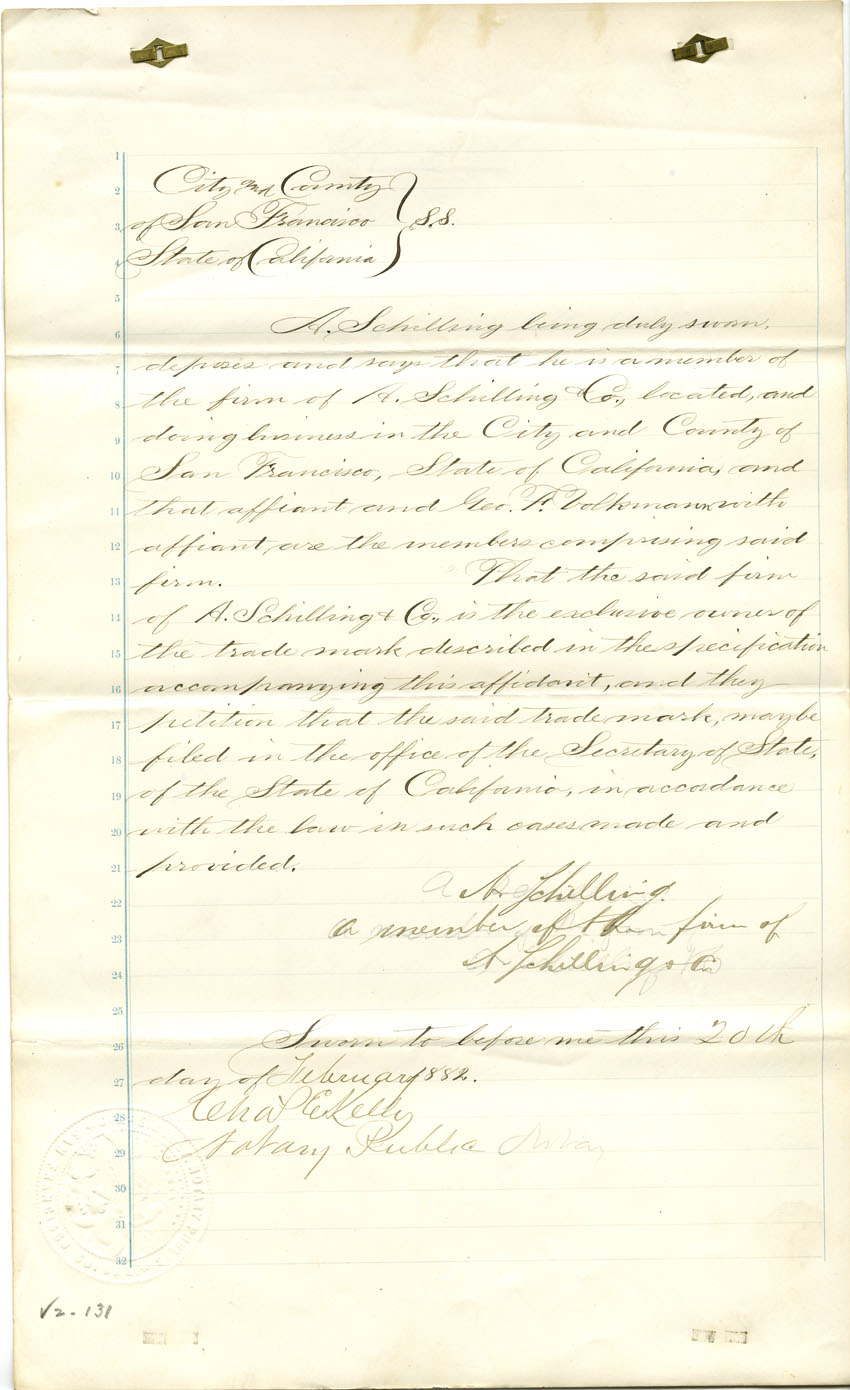 1
2 City and County
3 of San Francisco } S.S.
4 State of California
5
6 A. Schilling being duly sworn,
7 deposes and says that he is a member of
8 the firm of A. Schilling & Co., located, and
9 doing business in the City and County of
10 San Francisco, State of California, and
11 that affiant and Geo. F. Volkmann with
12 affiant, are the members comprising said
13 firm. That the said firm
14 of A. Schilling & Co., is the exclusive owner of
15 the trade mark described in the specification
16 accompanying this affidavit, and they
17 petition that the said trade mark, may be
18 filed in the office of the Secretary of State,
19 of the State of California, in accordance
20 with the law in such cases made and
21 provided.
22 A. Schilling.
23 a member of the firm of
24 A Schilling & Co
25
26 Sworn to before me this 20th
27 day of February 1882.
28 Chas E Kelly
29 Notary Public
30
31
32
V2-131